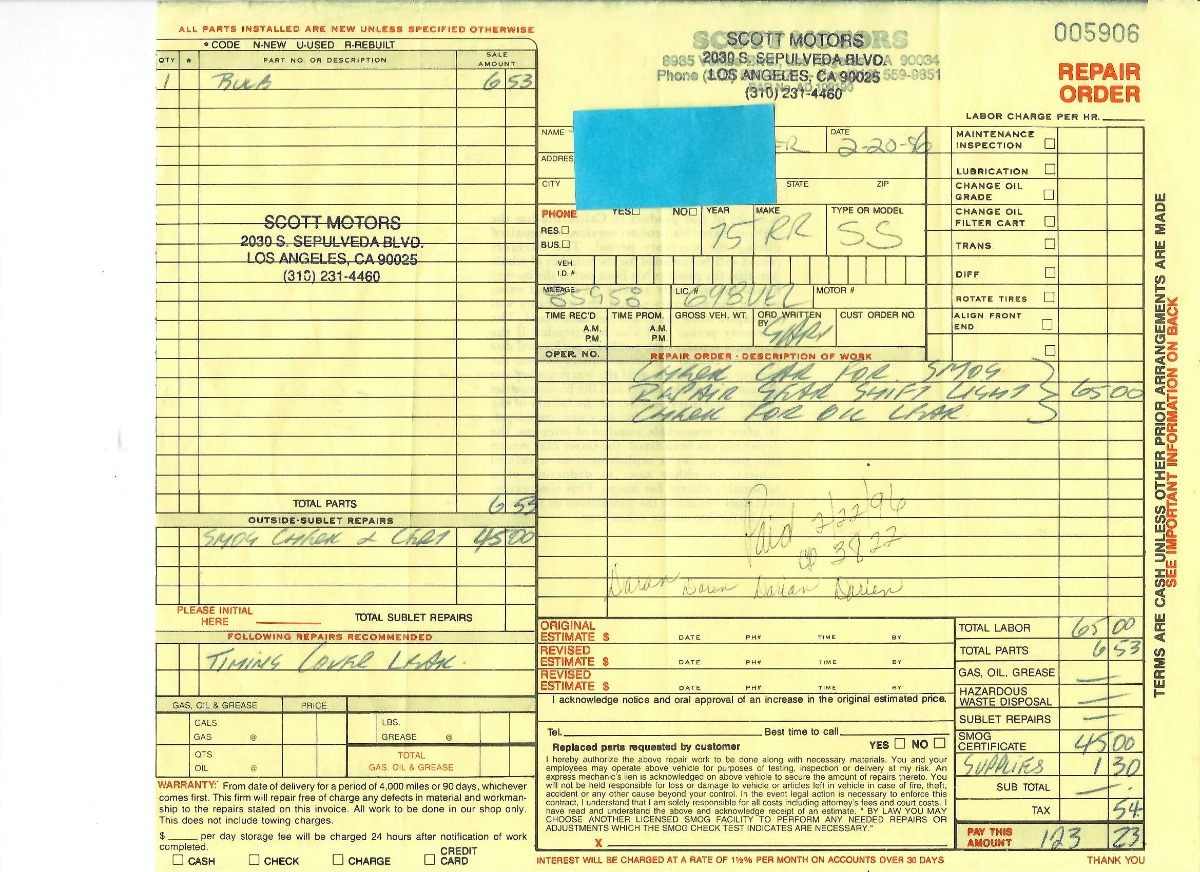 ALL PARTS INSTALLED ARE NEW UNLESS SPECIFIED OTHERWISE
* CODE N-NEW U-USED R-REBUILT
QTY * PART NO. OR DESCRIPTION SALE AMOUNT
1 BULB 6 53
SCOTT MOTORS
2030 S. SEPULVEDA BLVD.
LOS ANGELES, CA 90025
(310) 231-4460
TOTAL PARTS 6 53
OUTSIDE-SUBLET REPAIRS
SMOG CHECK & CERT 45 00
PLEASE INITIAL HERE
TOTAL SUBLET REPAIRS
FOLLOWING REPAIRS RECOMMENDED
TIMING COVER LEAK.
GAS, OIL & GREASE PRICE
GALS. GAS @
LBS. GREASE @
QTS. OIL @
TOTAL GAS, OIL & GREASE
WARRANTY: From date of delivery for a period of 4,000 miles or 90 days, whichever
comes first. This firm will repair free of charge any defects in material and workman-
ship to the repairs stated on this invoice. All work to be done in our shop only.
This does not include towing charges.
$ ____ per day storage fee will be charged 24 hours after notification of work
completed.
CASH CHECK CHARGE CREDIT CARD
SCOTT MOTORS
2030 S. SEPULVEDA BLVD.
LOS ANGELES, CA 90025
(310) 231-4460
90034
Phone 559-9851
005906
REPAIR
ORDER
LABOR CHARGE PER HR.
NAME ER DATE 2-20-96
ADDRES
CITY STATE ZIP
PHONE YES NO YEAR MAKE TYPE OR MODEL
RES.
BUS.
75 RR SS
VEH. I.D. #
MILEAGE 85958 LIC. # 698VEZ MOTOR #
TIME REC'D A.M. P.M. TIME PROM. A.M. P.M. GROSS VEH. WT. ORD. WRITTEN BY GARY CUST. ORDER NO.
MAINTENANCE INSPECTION
LUBRICATION
CHANGE OIL GRADE
CHANGE OIL FILTER CART
TRANS
DIFF
ROTATE TIRES
ALIGN FRONT END
OPER. NO. REPAIR ORDER - DESCRIPTION OF WORK
CHECK CAR FOR SMOG
REPAIR GEAR SHIFT LIGHT 65 00
CHECK FOR OIL LEAK
Paid 2/22/96
3822
Daran Daren Darian Darien
ORIGINAL ESTIMATE $ DATE PH# TIME BY
REVISED ESTIMATE $ DATE PH# TIME BY
REVISED ESTIMATE $ DATE PH# TIME BY
I acknowledge notice and oral approval of an increase in the original estimated price.
Tel. Best time to call
Replaced parts requested by customer YES NO
I hereby authorize the above repair work to be done along with necessary materials. You and your
employees may operate above vehicle for purposes of testing, inspection or delivery at my risk. An
express mechanic's lien is acknowledged on above vehicle to secure the amount of repairs thereto. You
will not be held responsible for loss or damage to vehicle or articles left in vehicle in case of fire, theft,
accident or any other cause beyond your control. In the event legal action is necessary to enforce this
contract, I understand that I am solely responsible for all costs including attorney's fees and court costs. I
have read and understand the above and acknowledge receipt of an estimate. " BY LAW YOU MAY
CHOOSE ANOTHER LICENSED SMOG FACILITY TO PERFORM ANY NEEDED REPAIRS OR
ADJUSTMENTS WHICH THE SMOG CHECK TEST INDICATES ARE NECESSARY."
X
INTEREST WILL BE CHARGED AT A RATE OF 1½% PER MONTH ON ACCOUNTS OVER 30 DAYS
TOTAL LABOR 65 00
TOTAL PARTS 6 53
GAS, OIL, GREASE —
HAZARDOUS WASTE DISPOSAL —
SUBLET REPAIRS —
SMOG CERTIFICATE 45 00
SUPPLIES 1 30
SUB TOTAL —
TAX 54
PAY THIS AMOUNT 123 23
THANK YOU
TERMS ARE CASH UNLESS OTHER PRIOR ARRANGEMENTS ARE MADE
SEE IMPORTANT INFORMATION ON BACK